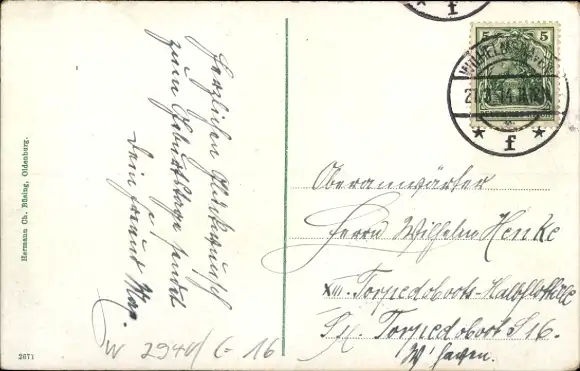 Herzlichen Glückwunsch
zum Geburtstage sendet
Dir
Dein Freund Max.
W 2940/ E 16
Hermann Ch. Büsing, Oldenburg.
2671
5 5
WILHELMSHAVEN
21.3.14
* f *
f
Oberanwärter
Herrn Wilhelm Henke
XIII. Torpedoboots-Halbflottille
S.M. Torpedoboot S 16.
W'haven.